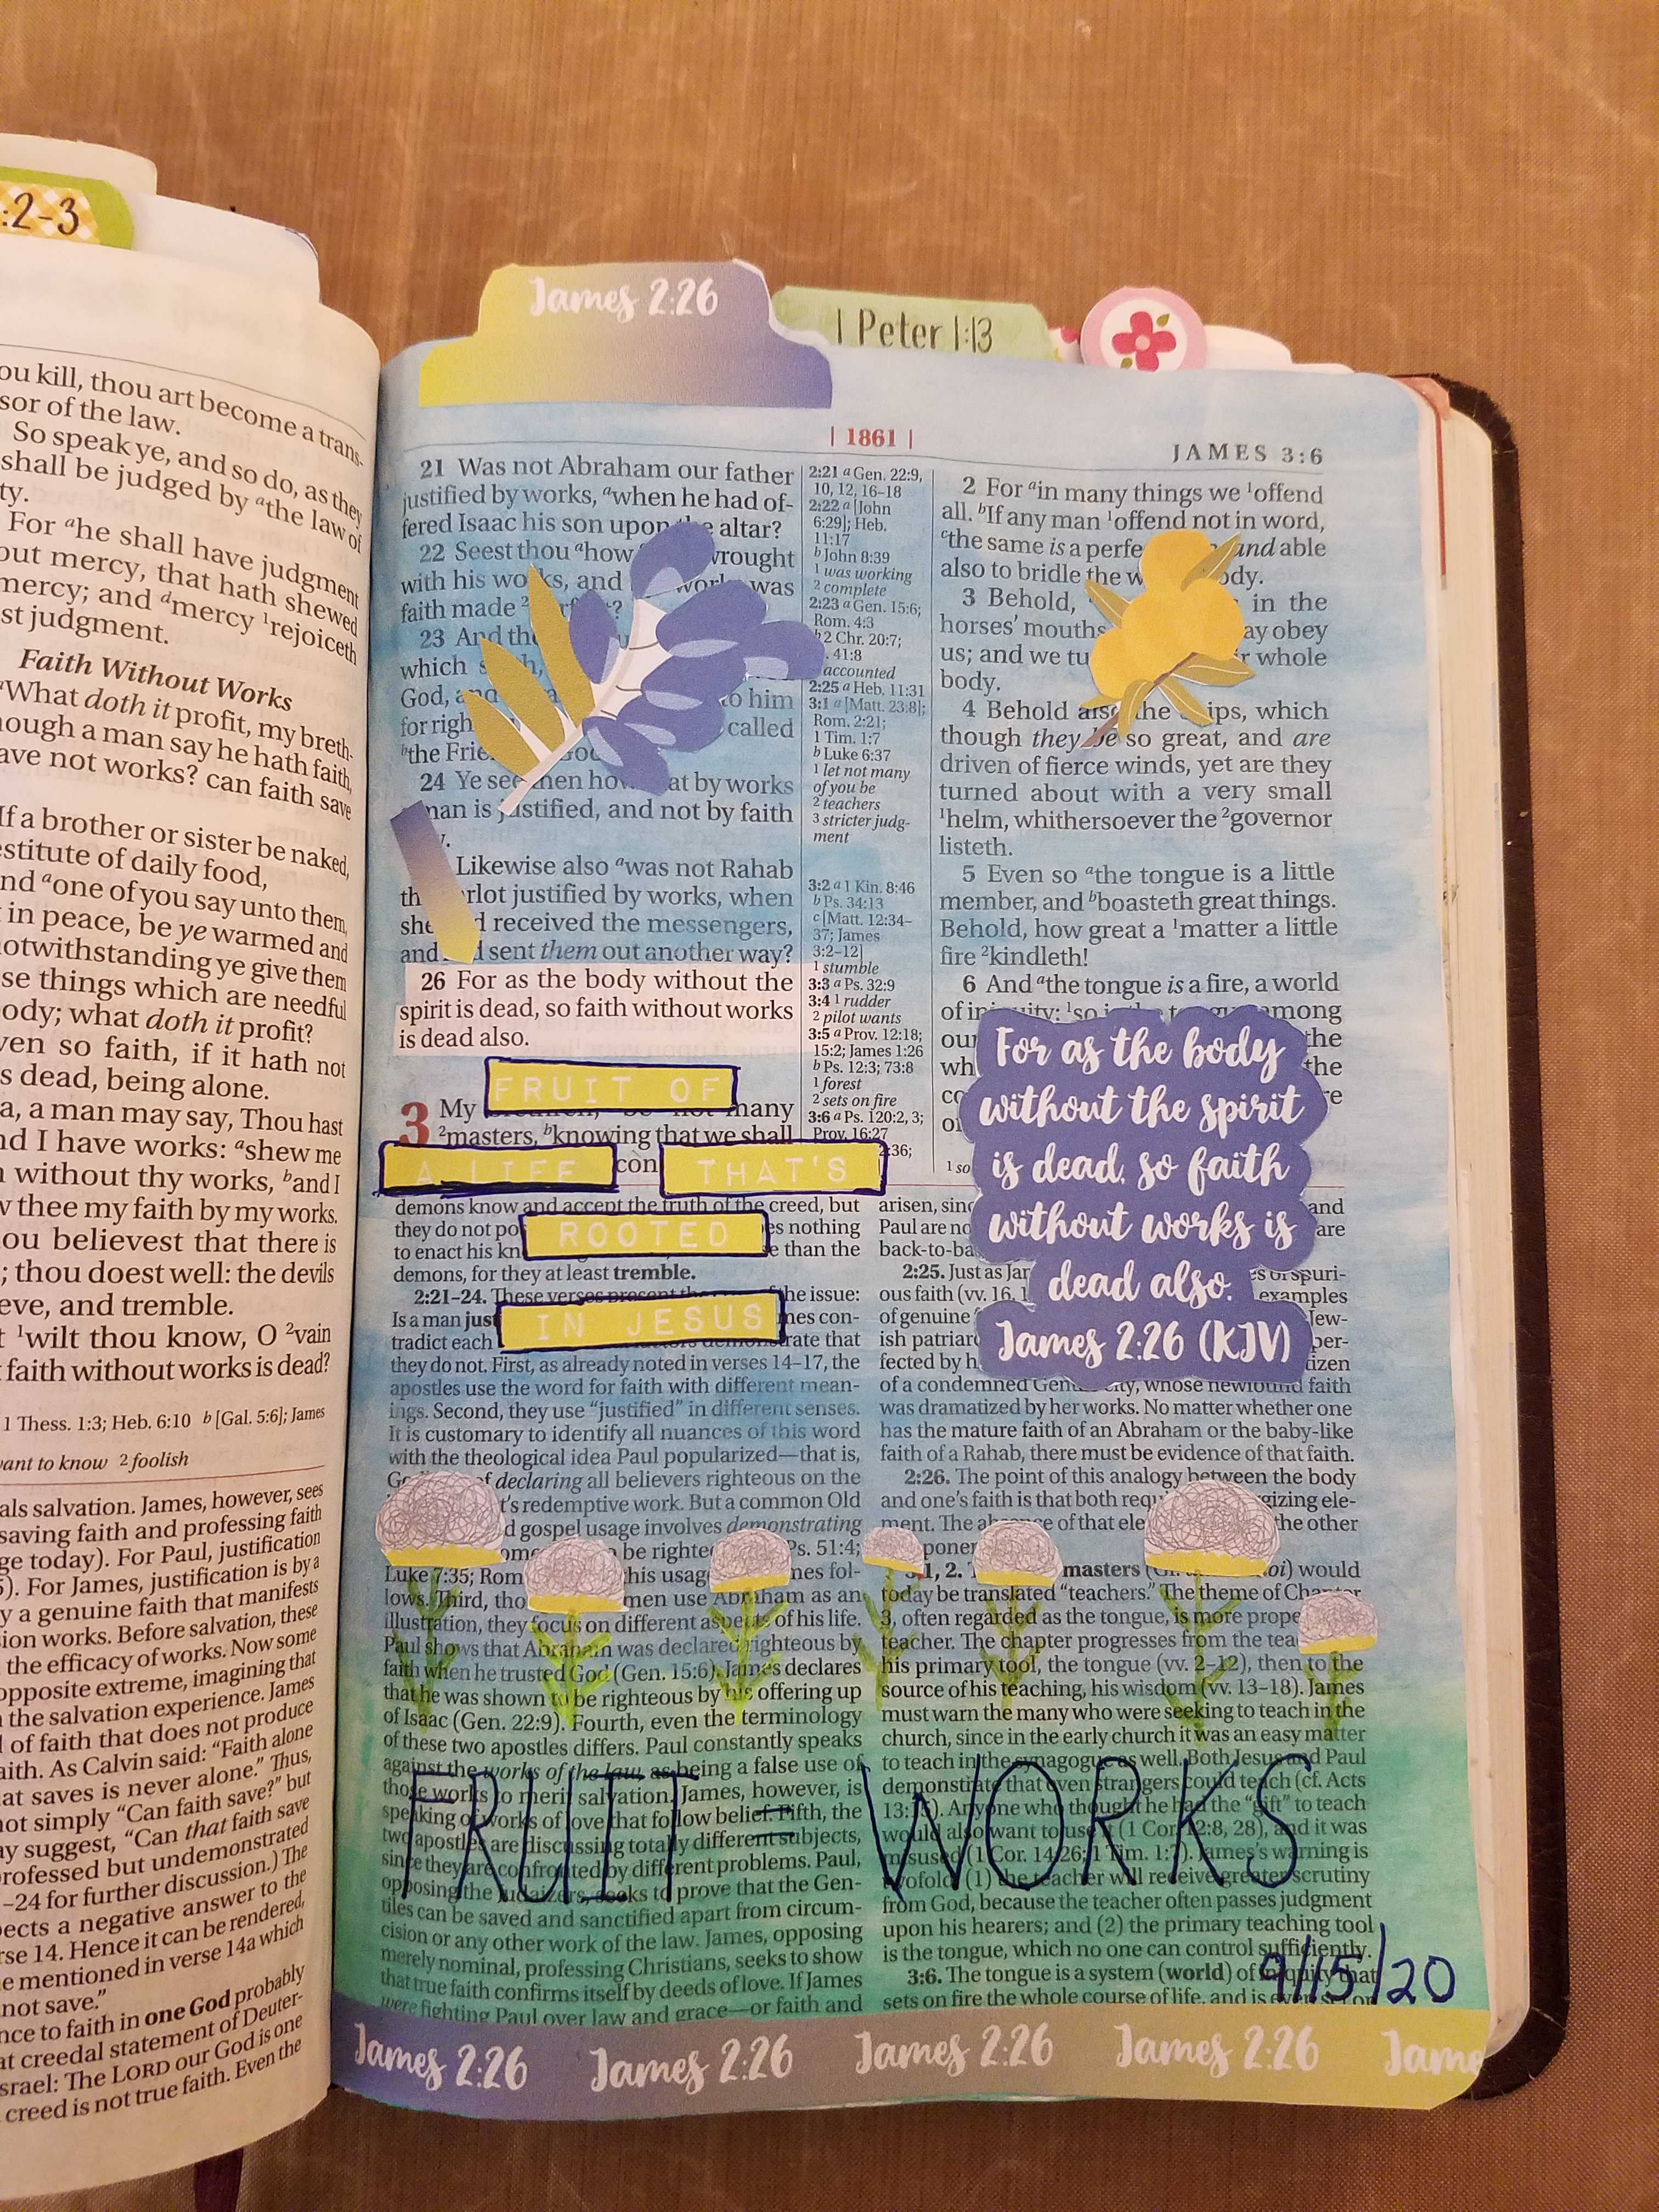 :2-3
James 2:26
1 Peter 1:13
ou kill, thou art become a trans-
sor of the law.
So speak ye, and so do, as they
shall be judged by athe law of
ty.
For ahe shall have judgment
out mercy, that hath shewed
mercy; and dmercy 1rejoiceth
st judgment.
Faith Without Works
aWhat doth it profit, my breth-
ough a man say he hath faith,
ave not works? can faith save
If a brother or sister be naked,
estitute of daily food,
nd aone of you say unto them,
in peace, be ye warmed and
notwithstanding ye give them
se things which are needful
ody; what doth it profit?
ven so faith, if it hath not
s dead, being alone.
a, a man may say, Thou hast
nd I have works: ashew me
n without thy works, band I
w thee my faith by my works.
ou believest that there is
; thou doest well: the devils
eve, and tremble.
t 1wilt thou know, O 2vain
faith without works is dead?
1 Thess. 1:3; Heb. 6:10 b [Gal. 5:6]; James
ant to know 2 foolish
als salvation. James, however, sees
saving faith and professing faith
ge today). For Paul, justification
5). For James, justification is by a
y a genuine faith that manifests
ion works. Before salvation, these
the efficacy of works. Now some
opposite extreme, imagining that
the salvation experience. James
l of faith that does not produce
aith. As Calvin said: "Faith alone
at saves is never alone." Thus,
not simply "Can faith save?" but
ay suggest, "Can that faith save
professed but undemonstrated
–24 for further discussion.) The
pects a negative answer to the
rse 14. Hence it can be rendered,
e mentioned in verse 14a which
not save."
nce to faith in one God probably
at creedal statement of Deuter-
srael: The LORD our God is one
creed is not true faith. Even the
| 1861 |
JAMES 3:6
21 Was not Abraham our father
justified by works, awhen he had of-
fered Isaac his son upon the altar?
22 Seest thou ahow wrought
with his works, and works was
faith made
23 And the
which
God, and to him
for righ called
bthe Frie God
24 Ye see then how at by works
man is justified, and not by faith
Likewise also awas not Rahab
th rlot justified by works, when
she d received the messengers,
and sent them out another way?
26 For as the body without the
spirit is dead, so faith without works
is dead also.
FRUIT OF
3 My many
2masters, bknowing that we shall
A LIFE con THAT'S
2:21 a Gen. 22:9,
10, 12, 16–18
2:22 a [John
6:29]; Heb.
11:17
b John 8:39
1 was working
2 complete
2:23 a Gen. 15:6;
Rom. 4:3
b 2 Chr. 20:7;
41:8
accounted
2:25 a Heb. 11:31
3:1 a [Matt. 23:8];
Rom. 2:21;
1 Tim. 1:7
b Luke 6:37
1 let not many
of you be
2 teachers
3 stricter judg-
ment
3:2 a 1 Kin. 8:46
b Ps. 34:13
c [Matt. 12:34–
37; James
3:2–12]
1 stumble
3:3 a Ps. 32:9
3:4 1 rudder
2 pilot wants
3:5 a Prov. 12:18;
15:2; James 1:26
b Ps. 12:3; 73:8
1 forest
2 sets on fire
3:6 a Ps. 120:2, 3;
Prov. 16:27
2:36;
1 so
2 For ain many things we 1offend
all. bIf any man 1offend not in word,
cthe same is a perfe and able
also to bridle the w ody.
3 Behold, in the
horses' mouths ay obey
us; and we tu r whole
body.
4 Behold also the ships, which
though they be so great, and are
driven of fierce winds, yet are they
turned about with a very small
1helm, whithersoever the 2governor
listeth.
5 Even so athe tongue is a little
member, and bboasteth great things.
Behold, how great a 1matter a little
fire 2kindleth!
6 And athe tongue is a fire, a world
of iniquity: 1so is the tongue among
our the
wh the
For as the body
without the spirit
is dead, so faith
without works is
dead also.
James 2:26 (KJV)
demons know and accept the truth of the creed, but
they do not po es nothing
ROOTED
to enact his kn e than the
demons, for they at least tremble.
2:21–24. These verses present the the issue:
Is a man just mes con-
IN JESUS
tradict each demonstrate that
they do not. First, as already noted in verses 14–17, the
apostles use the word for faith with different mean-
ings. Second, they use "justified" in different senses.
It is customary to identify all nuances of this word
with the theological idea Paul popularized—that is,
of declaring all believers righteous on the
t's redemptive work. But a common Old
d gospel usage involves demonstrating
be righte Ps. 51:4;
Luke 7:35; Rom this usag mes fol-
lows. Third, tho men use Abraham as an
illustration, they focus on different aspects of his life.
Paul shows that Abraham was declared righteous by
faith when he trusted God (Gen. 15:6). James declares
that he was shown to be righteous by his offering up
of Isaac (Gen. 22:9). Fourth, even the terminology
of these two apostles differs. Paul constantly speaks
against the works of the law as being a false use of
those works to merit salvation. James, however, is
speaking of works of love that follow belief. Fifth, the
two apostles are discussing totally different subjects,
since they are confronted by different problems. Paul,
opposing the Judaizers, seeks to prove that the Gen-
tiles can be saved and sanctified apart from circum-
cision or any other work of the law. James, opposing
merely nominal, professing Christians, seeks to show
that true faith confirms itself by deeds of love. If James
were fighting Paul over law and grace—or faith and
arisen, sinc and
Paul are no are
back-to-ba
2:25. Just as Jam es of spuri-
ous faith (vv. 16, 1 examples
of genuine Jew-
ish patriar per-
fected by h tizen
of a condemned Gentile city, whose newfound faith
was dramatized by her works. No matter whether one
has the mature faith of an Abraham or the baby-like
faith of a Rahab, there must be evidence of that faith.
2:26. The point of this analogy between the body
and one's faith is that both requ rgizing ele-
ment. The absence of that ele the other
ponen
3:1, 2. masters ( oi) would
today be translated "teachers." The theme of Chapter
3, often regarded as the tongue, is more prope
teacher. The chapter progresses from the tea
his primary tool, the tongue (vv. 2–12), then to the
source of his teaching, his wisdom (vv. 13–18). James
must warn the many who were seeking to teach in the
church, since in the early church it was an easy matter
to teach in the synagogue as well. Both Jesus and Paul
demonstrate that even strangers could teach (cf. Acts
13:15). Anyone who thought he had the "gift" to teach
would also want to use it (1 Cor. 12:8, 28), and it was
misused (1 Cor. 14:26; 1 Tim. 1:7). James's warning is
twofold: (1) the teacher will receive greater scrutiny
from God, because the teacher often passes judgment
upon his hearers; and (2) the primary teaching tool
is the tongue, which no one can control sufficiently.
3:6. The tongue is a system (world) of iniquity that
sets on fire the whole course of life, and is even set on
FRUIT = WORKS
9/15/20
James 2:26 James 2:26 James 2:26 James 2:26 Jame